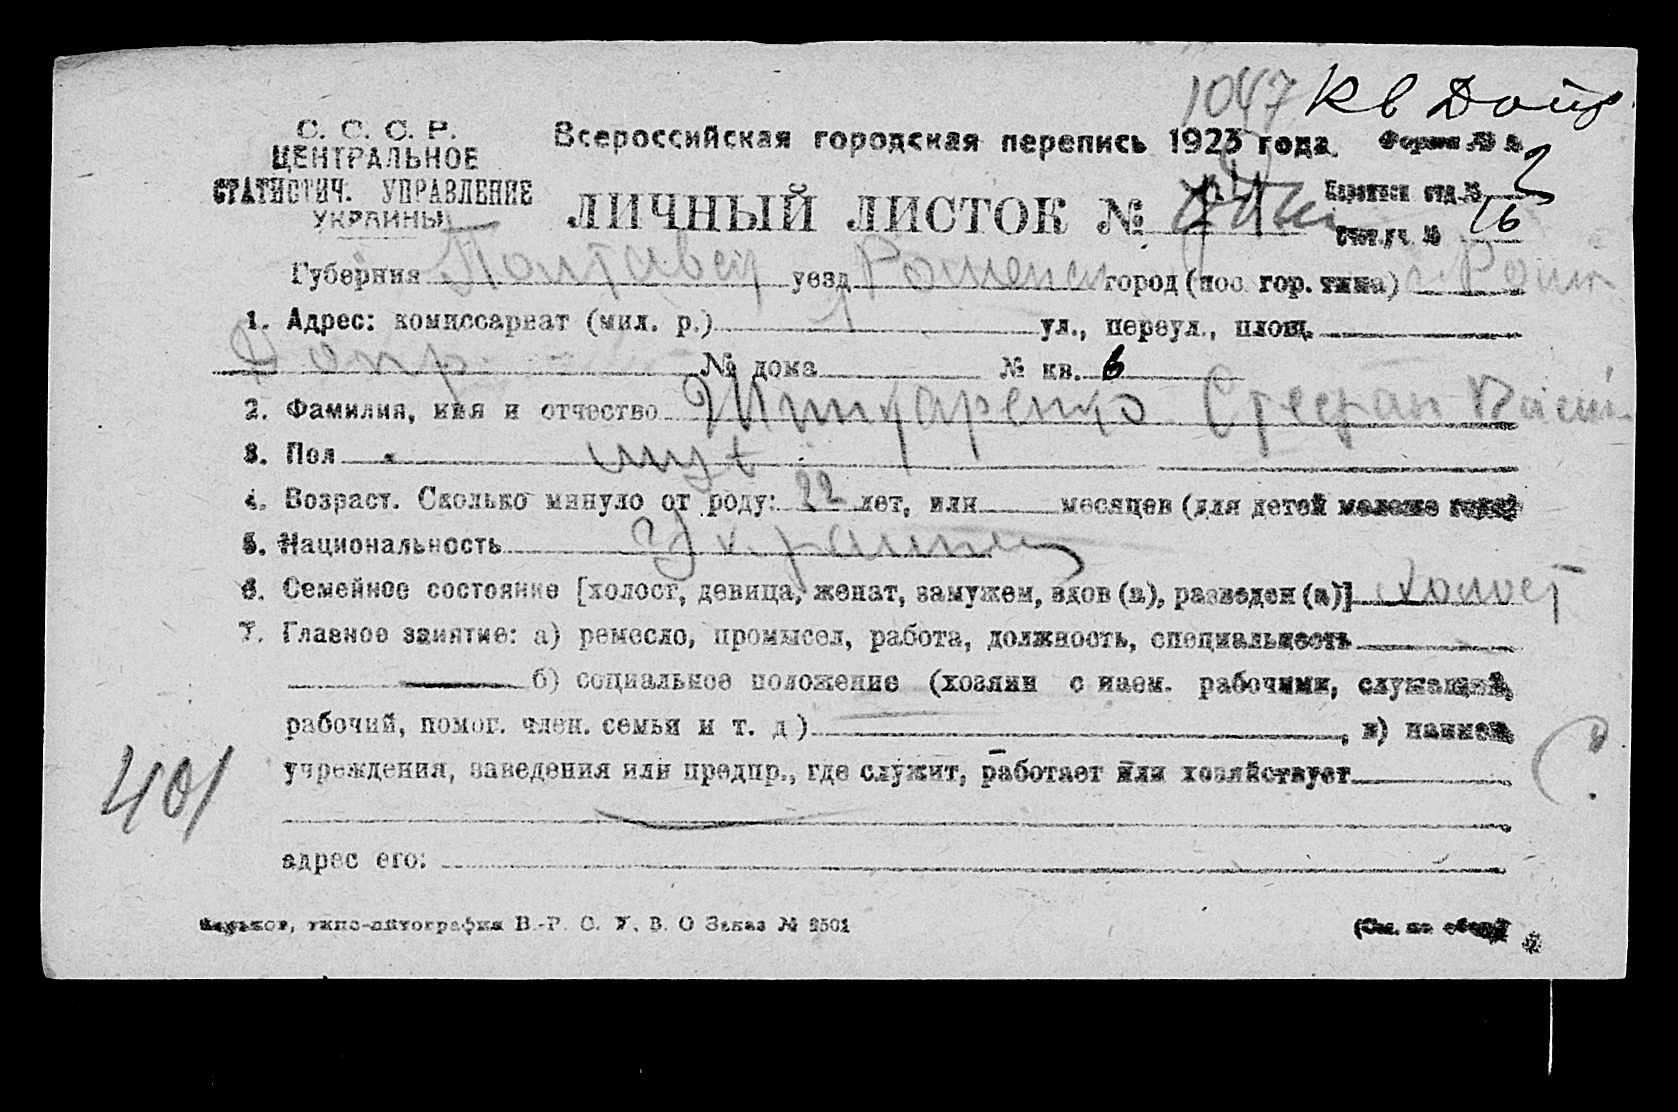 1047 кв Допр
С. С. С. Р.
ЦЕНТРАЛЬНОЕ
СТАТИСТИЧ. УПРАВЛЕНИЕ
УКРАИНЫ
Всероссийская городская перепись 1923 года. Форма № А.
ЛИЧНЫЙ ЛИСТОК №
Переписн отд. № 2
Счетн. уч. № 16
Губерния Полтавск уезд Роменск город (пос. гор. типа) г. Ромн
1. Адрес: комиссариат (мил. р.) 1 ул., переул., площ.
Допр № дома № кв. 6
2. Фамилия, имя и отчество Стефан
3. Пол муж
4. Возраст. Сколько минуло от роду: 22 лет, или месяцев (для детей моложе года)
5. Национальность Украинец
6. Семейное состояние [холост, девица, женат, замужем, вдов (а), разведен (а)] Холост
7. Главное занятие: а) ремесло, промысел, работа, должность, специальность
б) социальное положение (хозяин с наем. рабочими, служащий,
рабочий, помог. член. семьи и т. д) , в) наимен.
учреждения, заведения или предпр., где служит, работает или хозяйствует
401
адрес его:
Харьков, типо-литография В.-Р. С. У. В. О Заказ № 2501
(См. на обор.)